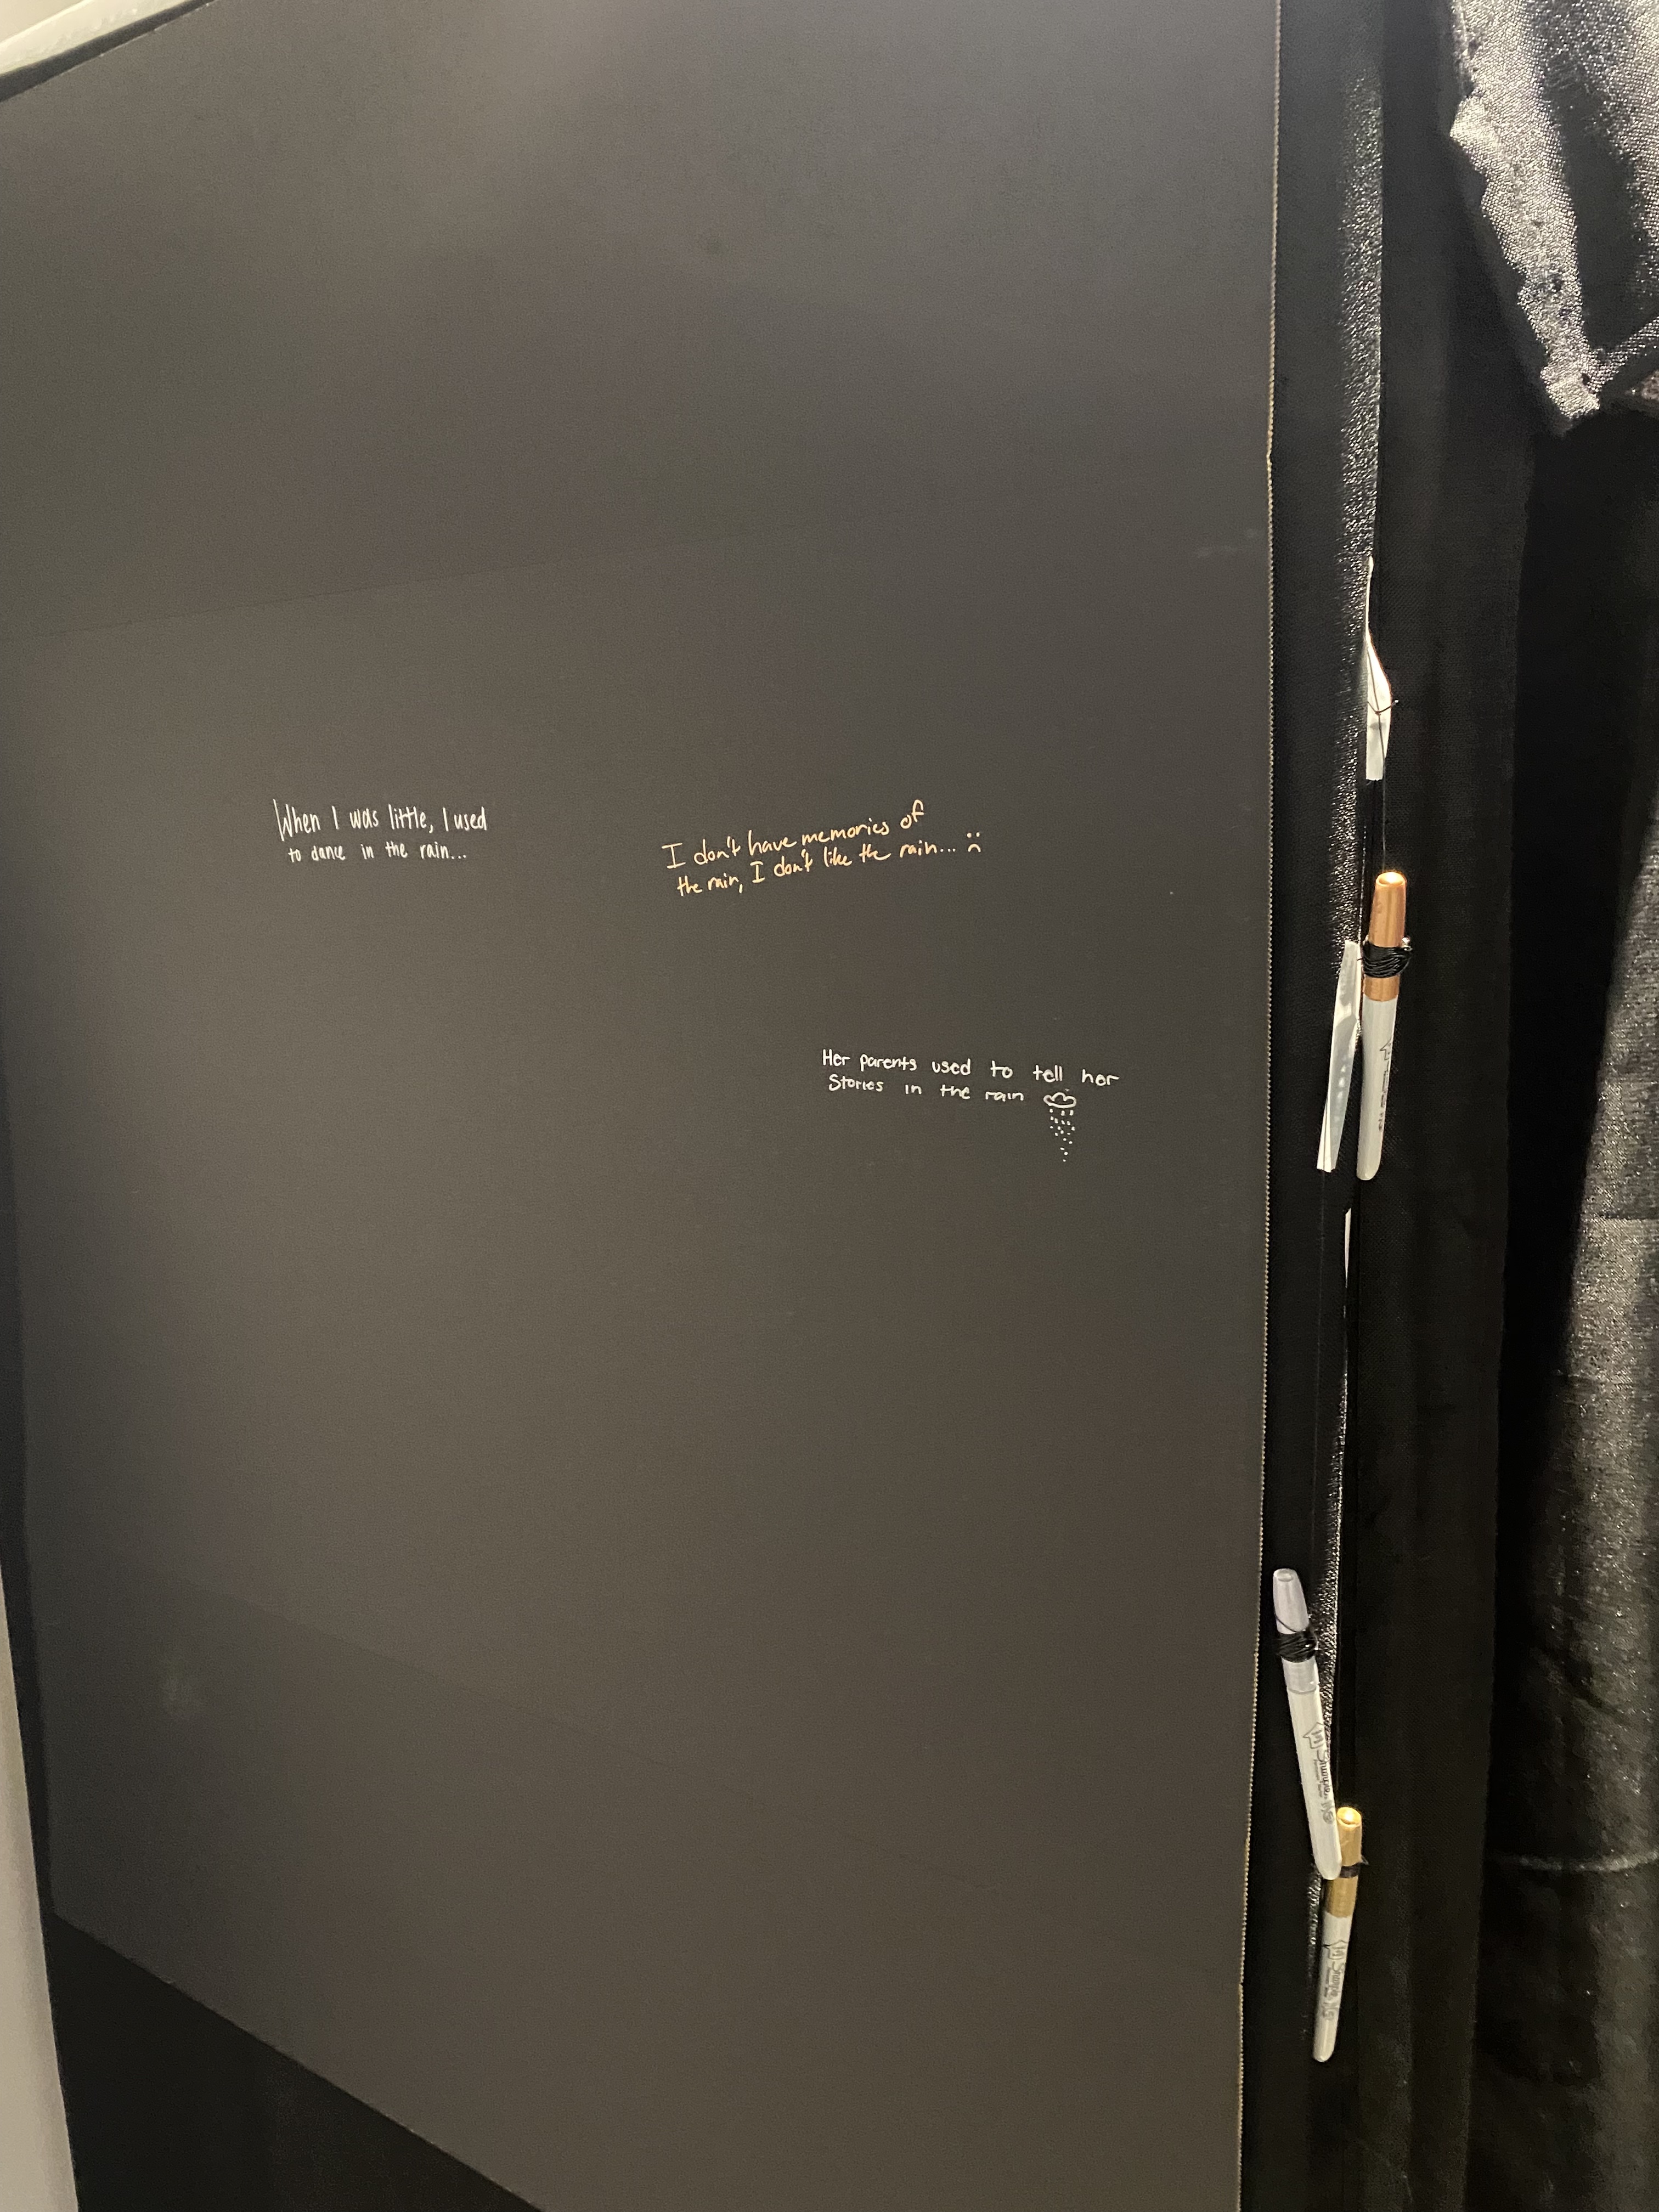 When I was little, I used
to dance in the rain...
I don't have memories of
the rain, I don't like the rain... :(
Her parents used to tell her
Stories in the rain
Sharpie
Sharpie